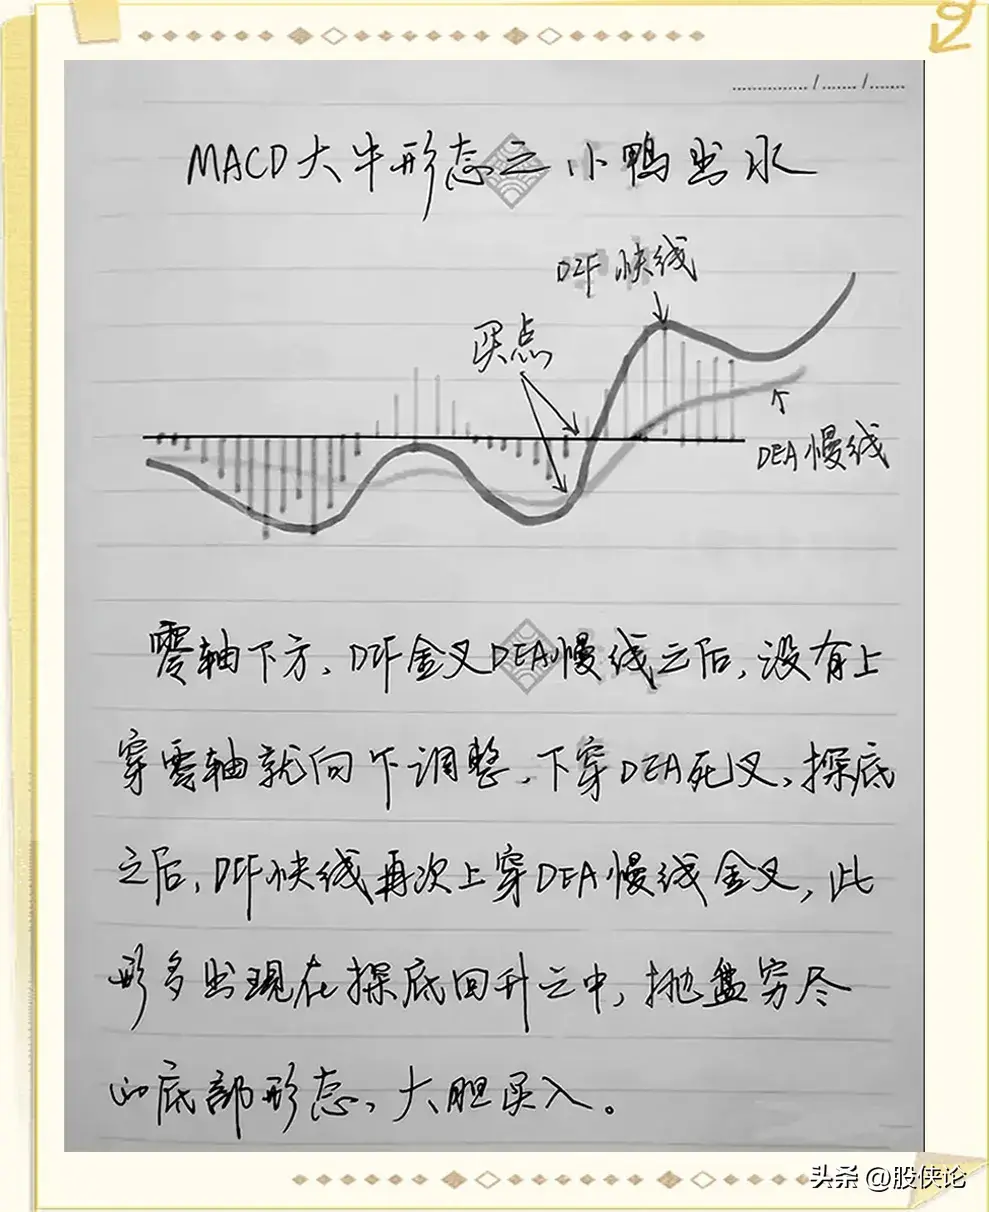 MACD大牛形态之小鸭出水
DIF快线
买点
DEA慢线
零轴下方,DIF金叉DEA慢线之后,没有上
穿零轴就向下调整,下穿DEA死叉,探底
之后,DIF快线再次上穿DEA慢线金叉,此
形多出现在探底回升之中,抛盘穷尽
的底部形态,大胆买入。
头条 @股侠论